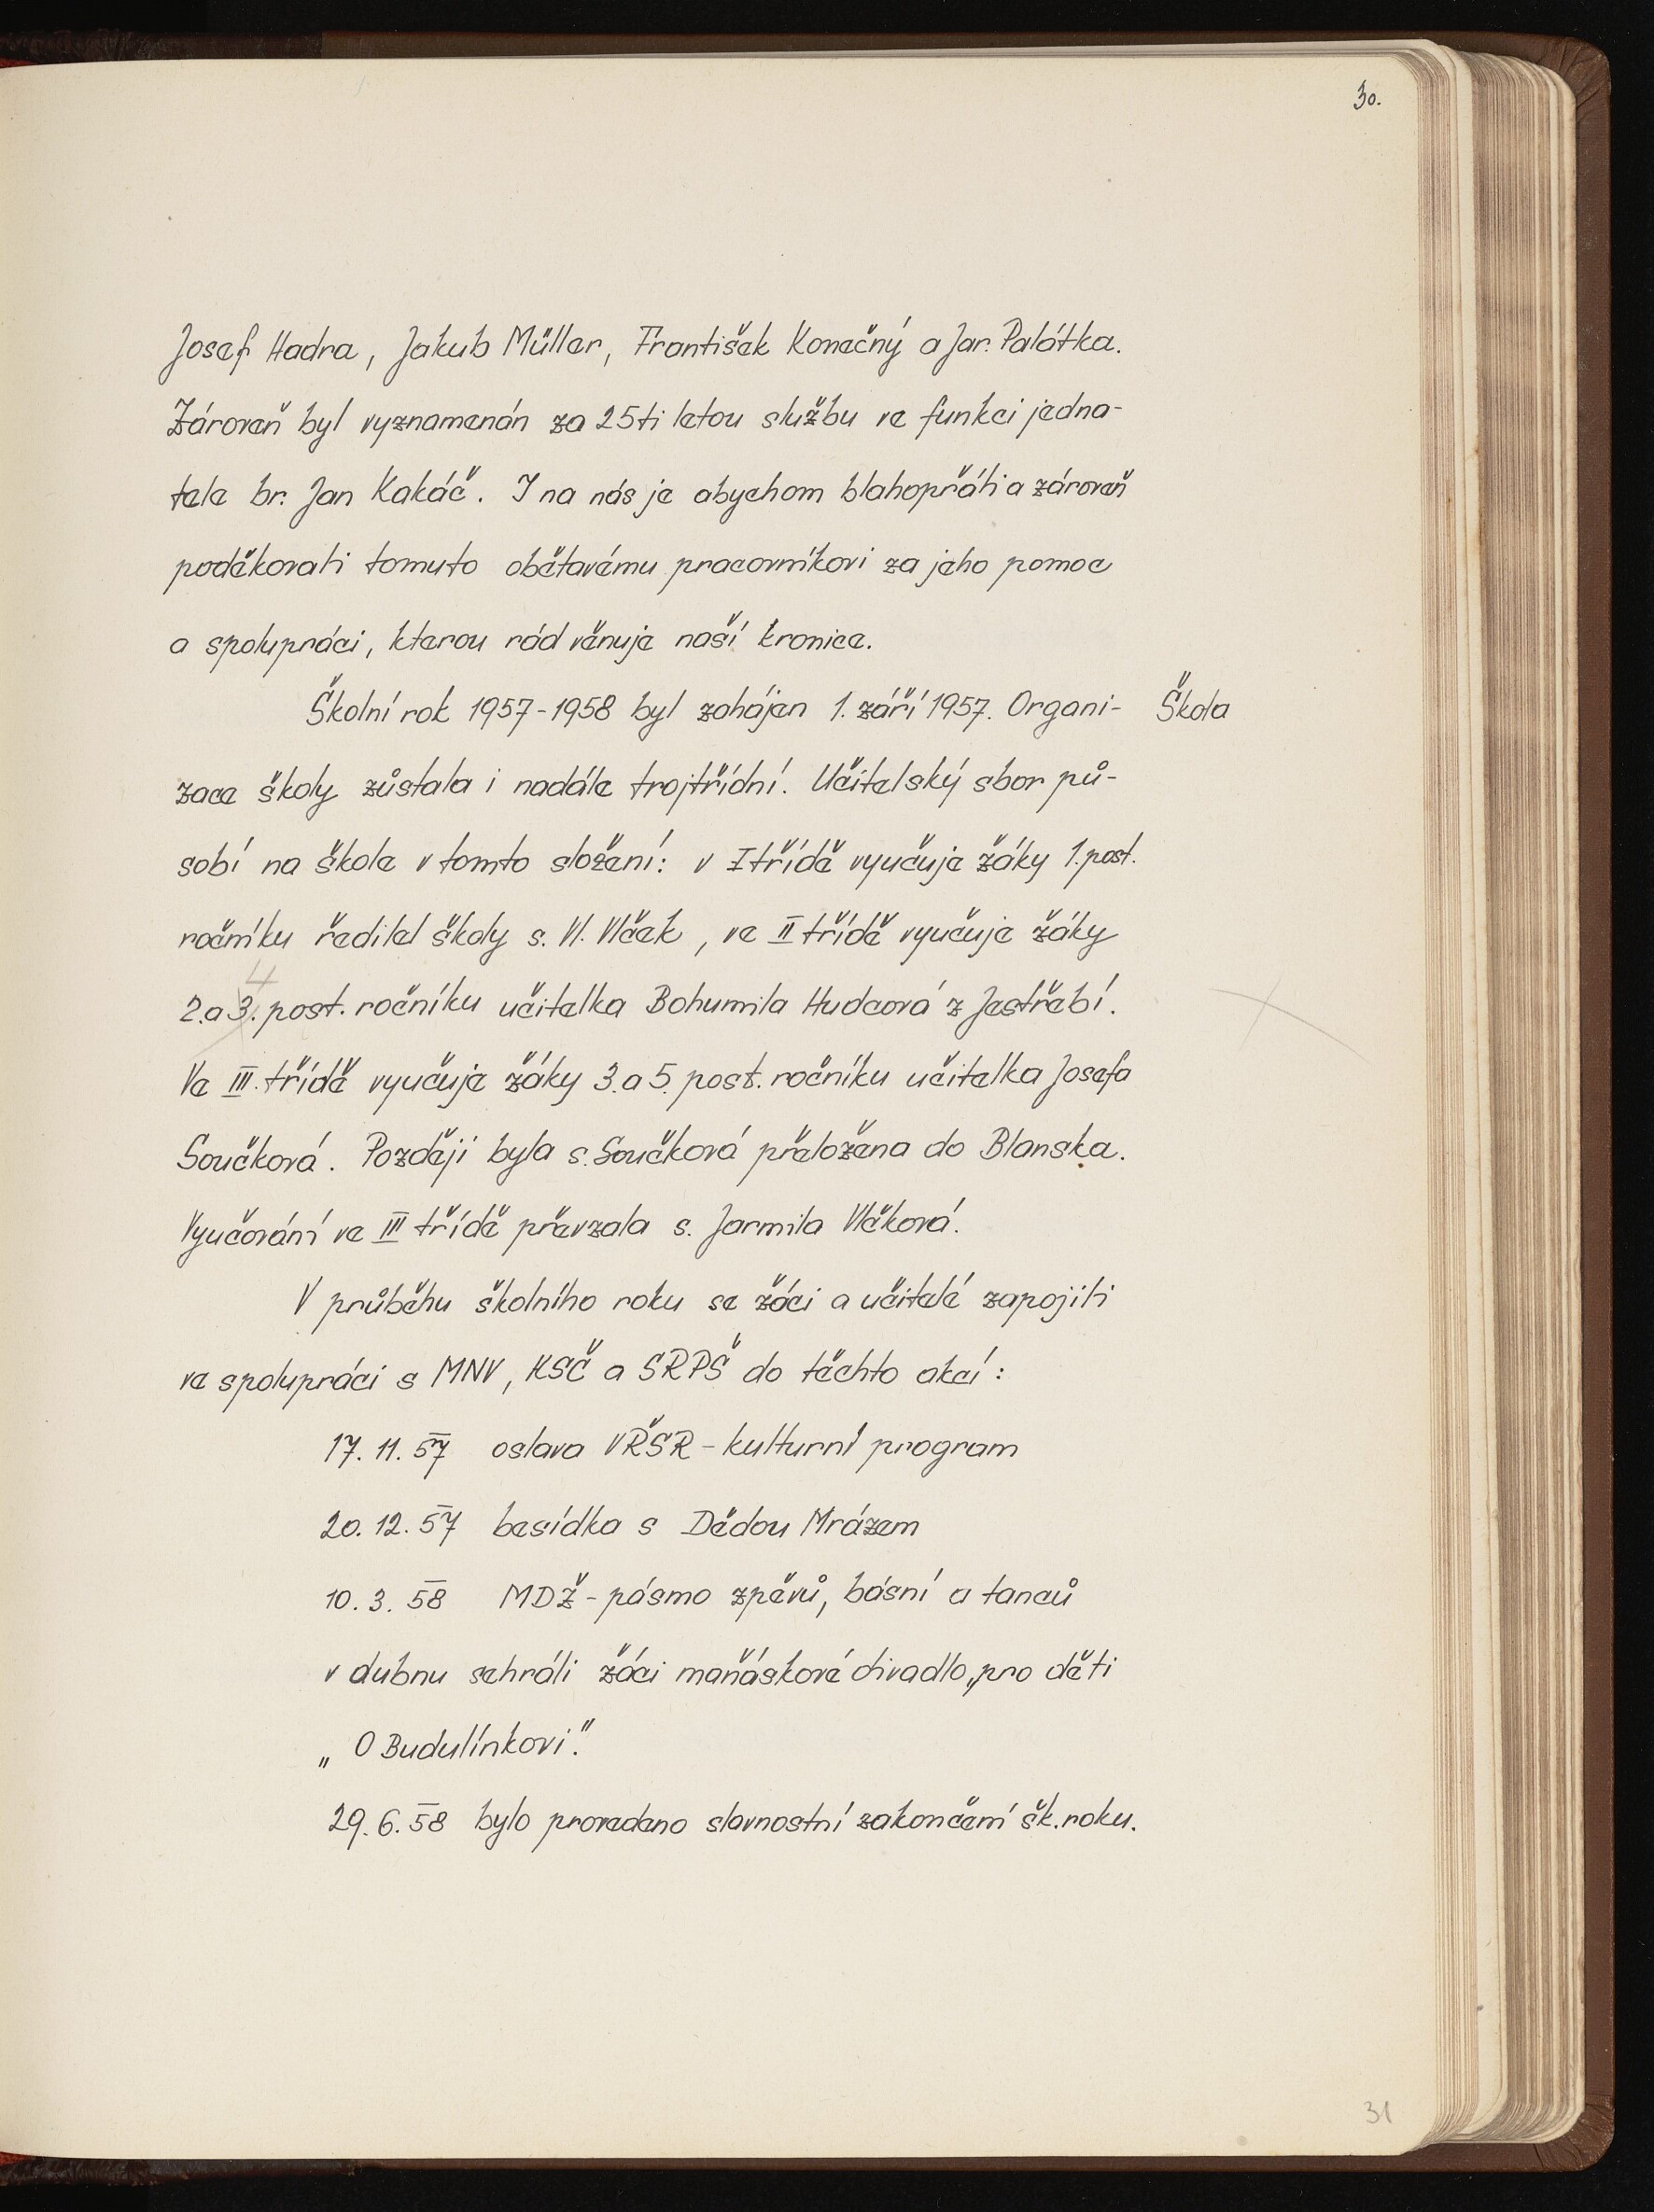 30.
Josef Hadra, Jakub Müller, František Konečný a Jar. Palátka.
Zároveň byl vyznamenán za 25ti letou službu ve funkci jedna-
tele br. Jan Kakáč. I na nás je abychom blahopřáli a zároveň
poděkovali tomuto obětavému pracovníkovi za jeho pomoc
a spolupráci, kterou rád věnuje naší kronice.
Školní rok 1957-1958 byl zahájen 1. září 1957. Organi- Škola
zace školy zůstala i nadále trojtřídní. Učitelský sbor pů-
sobí na škole v tomto složení: v I třídě vyučuje žáky 1. post.
ročníku ředitel školy s. Vl. Vlček, ve II třídě vyučuje žáky
4
2. a 3. post. ročníku učitelka Bohumila Hudcová z Jestřebí.
Ve III. třídě vyučuje žáky 3. a 5. post. ročníku učitelka Josefa
Součková. Později byla s. Součková přeložena do Blanska.
Vyučování ve III třídě převzala s. Jarmila Vlčková.
V průběhu školního roku se žáci a učitelé zapojili
ve spolupráci s MNV, KSČ a SRPŠ do těchto akcí:
17. 11. 57 oslava VŘSR - kulturní program
20. 12. 57 besídka s Dědou Mrázem
10. 3. 58 MDŽ - pásmo zpěvů, básní a tanců
v dubnu sehráli žáci maňáskové divadlo, pro děti
„O Budulínkovi."
29. 6. 58 bylo provedeno slavnostní zakončení šk. roku.
31